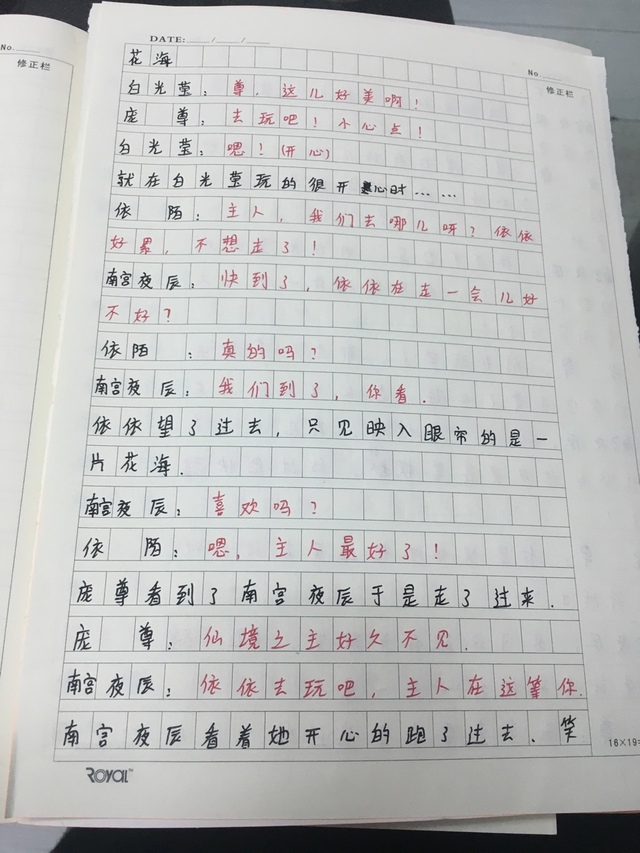 DATE: / /
No.
No.
修正栏
修正栏
花海
白光莹：尊，这儿好美啊！
庞尊：去玩吧！小心点！
白光莹：嗯！(开心)
就在白光莹玩的很开心时……
依陌：主人，我们去哪儿呀？依依
好累，不想走了！
南宫夜辰：快到了，依依在走一会儿好
不好？
依陌：真的吗？
南宫夜辰：我们到了，你看.
依依望了过去，只见映入眼帘的是一
片花海.
南宫夜辰：喜欢吗？
依陌：嗯，主人最好了！
庞尊看到了南宫夜辰于是走了过来.
庞尊：仙境之主好久不见.
南宫夜辰：依依去玩吧，主人在这等你.
南宫夜辰看着她开心的跑了过去.笑
ROYAL™
16×19=